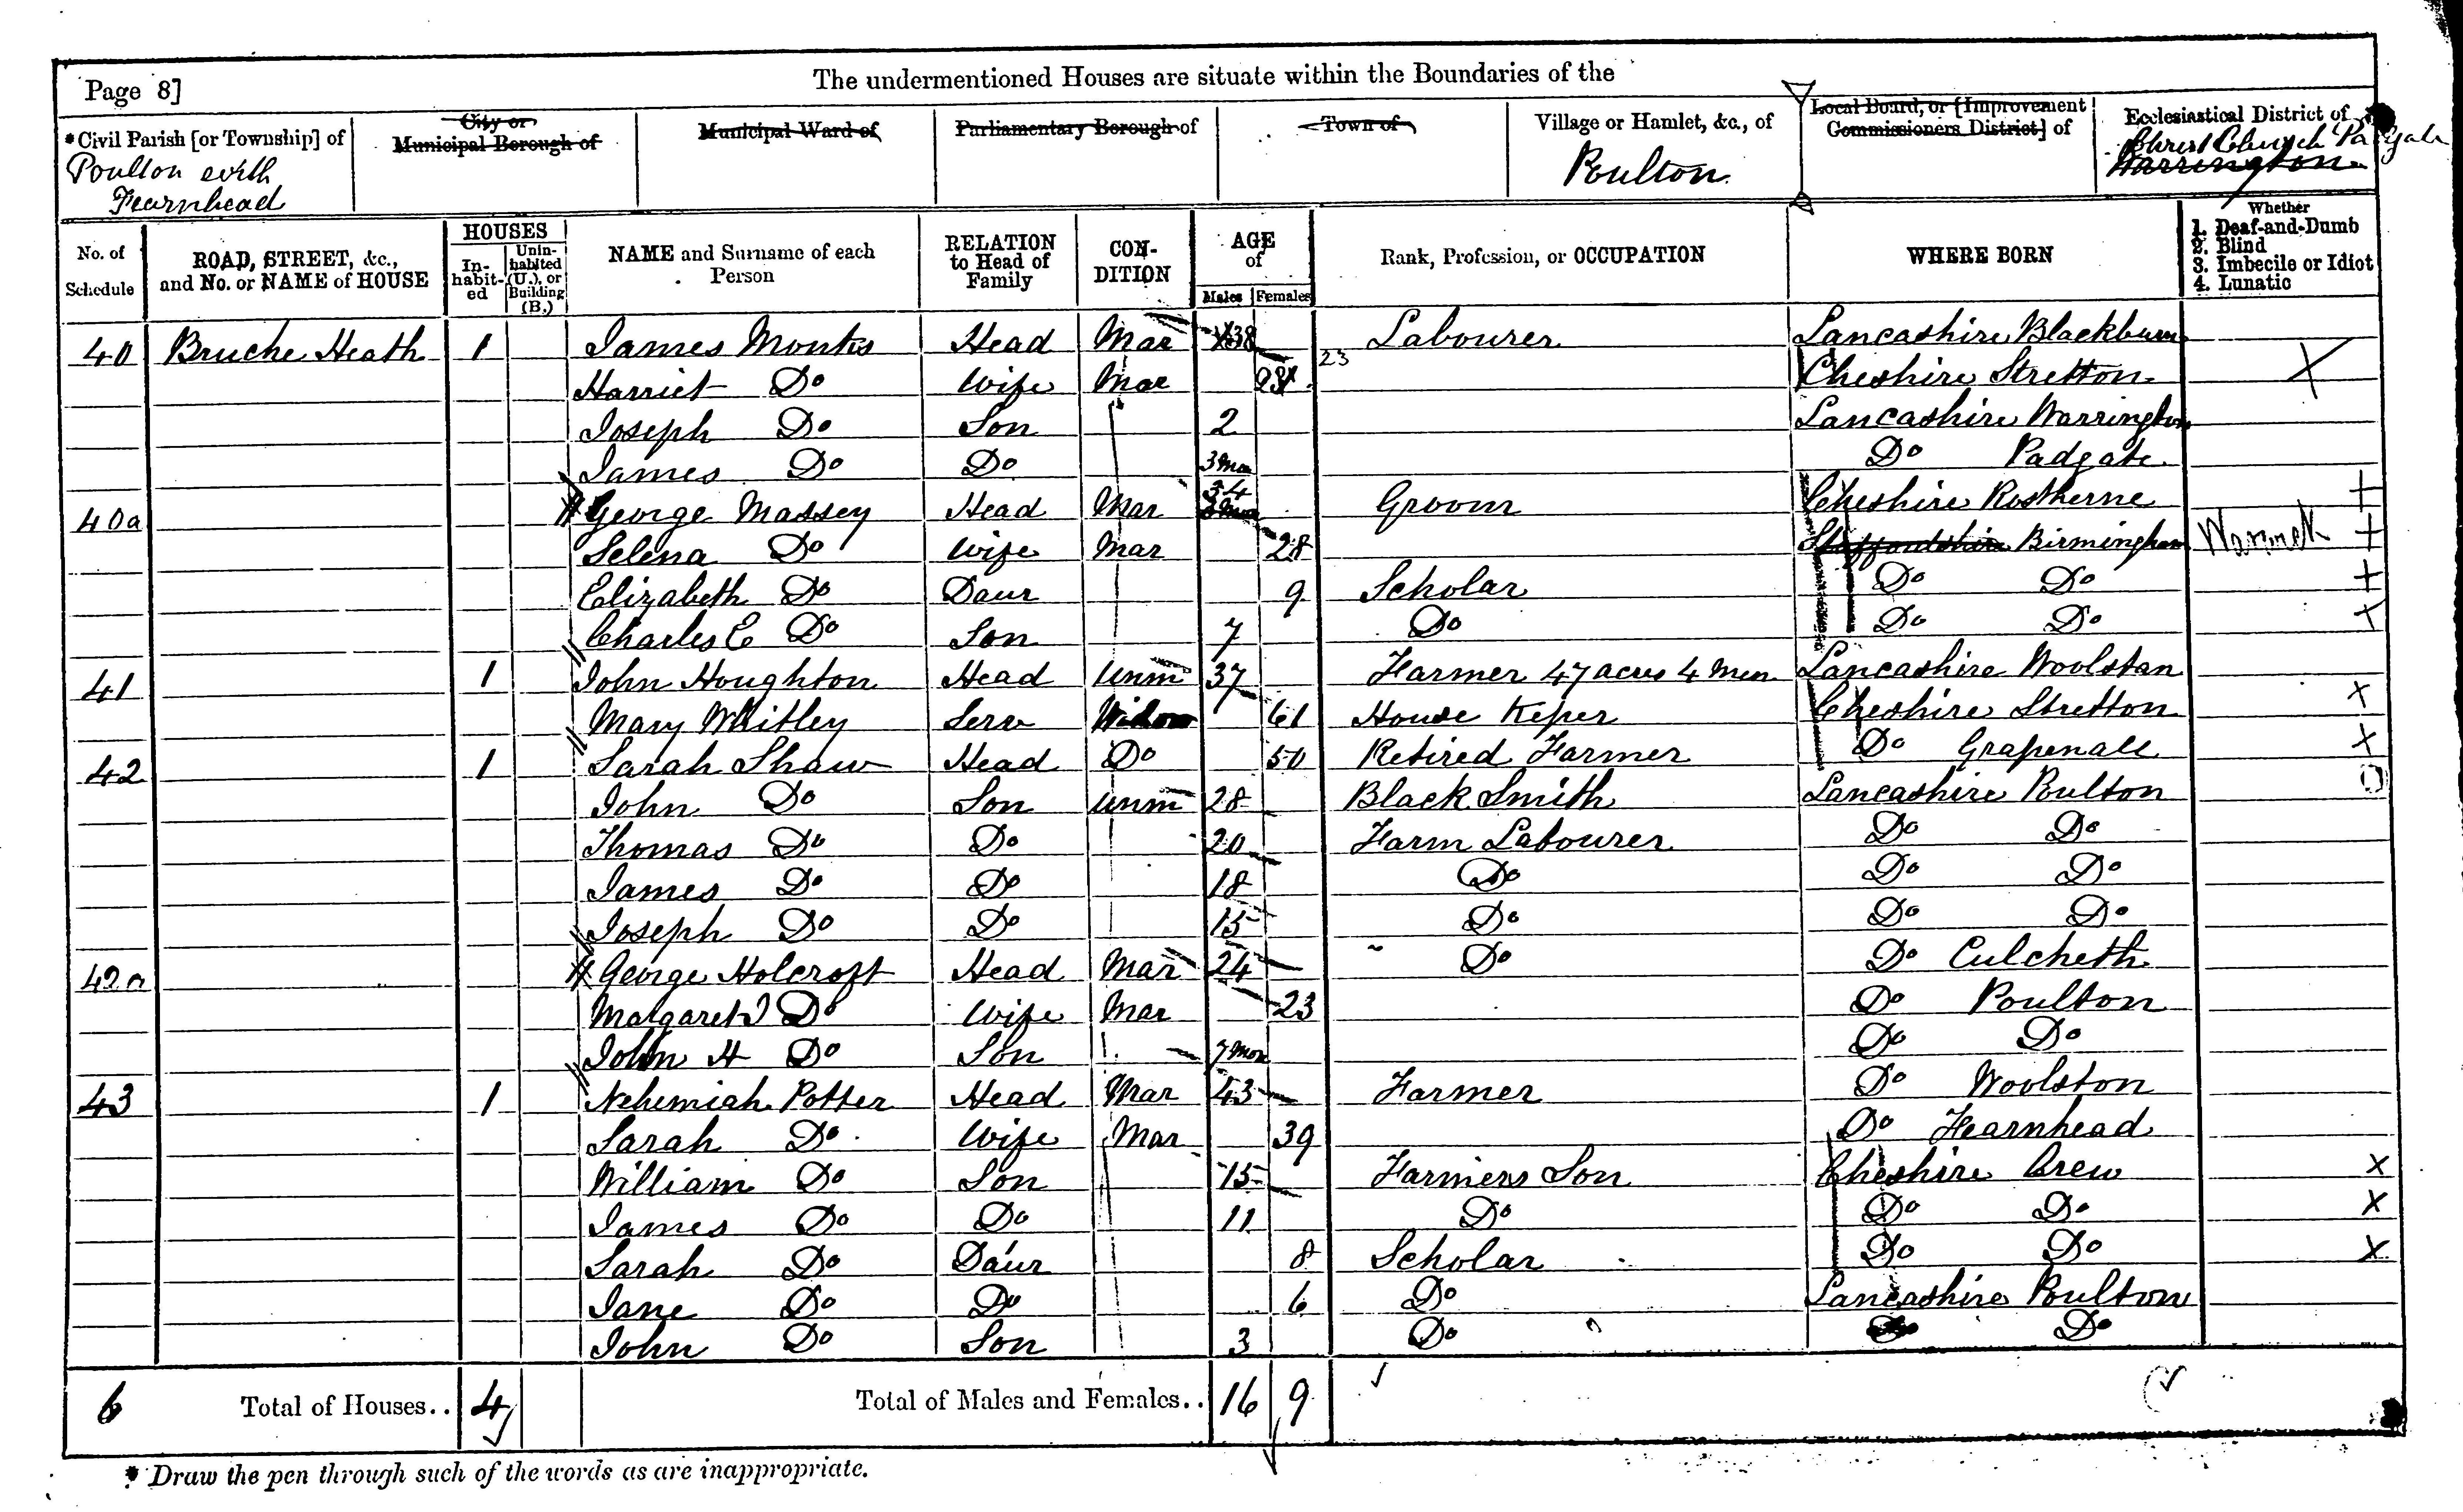 Page 8]
The undermentioned Houses are situate within the Boundaries of the
*Civil Parish [or Township] of
Poulton with
Fearnhead
City or
Municipal Borough of
Municipal Ward of
Parliamentary Borough of
Town of
Village or Hamlet, &c., of
Poulton
Local Board, or [Improvement
Commissioners District] of
Ecclesiastical District of
Christ Church Padgate
Warrington
No. of Schedule
ROAD, STREET, &c., and No. or NAME of HOUSE
HOUSES
In-habit-ed
Unin-habited (U.), or Building (B.)
NAME and Surname of each Person
RELATION to Head of Family
CON-DITION
AGE of
Males
Females
Rank, Profession, or OCCUPATION
WHERE BORN
Whether
1. Deaf-and-Dumb
2. Blind
3. Imbecile or Idiot
4. Lunatic
40 Bruche Heath 1 James Monks Head Mar 38 Labourer Lancashire Blackburn
Harriet Do Wife Mar 23 Cheshire Stretton X
Joseph Do Son 2 Lancashire Warrington
James Do Do 3 Mo Do Padgate
40a George Massey Head Mar 34 Groom Cheshire Rostherne +
Selena Do Wife Mar 28 Staffordshire Birmingham Warwick +
Elizabeth Do Daur 9 Scholar Do Do +
Charles E Do Son 7 Do Do Do +
41 1 John Houghton Head Unm 37 Farmer 47 acres 4 Men Lancashire Woolstan
Mary Whitley Serv Widow 61 House Keper Cheshire Stretton X
42 1 Sarah Shaw Head Do 50 Retired Farmer Do Grapenall X
John Do Son Unm 28 Black Smith Lancashire Poulton
Thomas Do Do 20 Farm Labourer Do Do
James Do Do 18 Do Do Do
Joseph Do Do 15 Do Do Do
42a George Holcroft Head Mar 24 Do Do Culcheth
Margaret Do Wife Mar 23 Do Poulton
John H Do Son 7 Mon Do Do
43 1 Nehemiah Potter Head Mar 43 Farmer Do Woolston
Sarah Do Wife Mar 39 Do Fearnhead
William Do Son 15 Farmers Son Cheshire Crew X
James Do Do 11 Do Do Do X
Sarah Do Daur 8 Scholar Do Do X
Jane Do Do 6 Do Lancashire Poulton
John Do Son 3 Do Do Do
6 Total of Houses.. 4 Total of Males and Females.. 16 9
* Draw the pen through such of the words as are inappropriate.